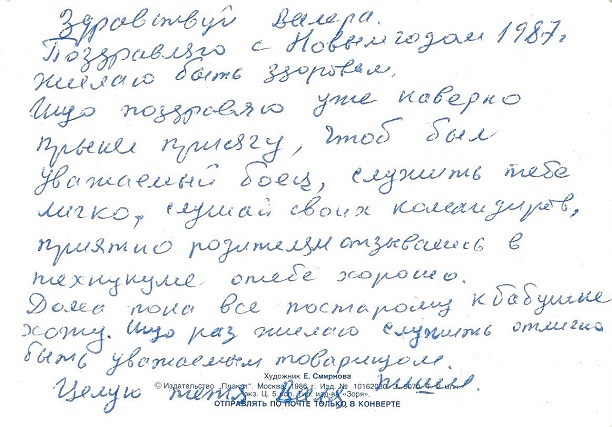 Здравствуй Валера.
Поздравляю с Новым годом 1987г
желаю быть здоровым.
Ищо поздравляю уже наверно
приняв присягу, чтоб был
уважаемый боец, служить тебе
легко, слушай своих командиров,
приятно родителям отзывались в
технукуме отебе хорошо.
Дома пока все постарому кбабушке
хожу. Ищо раз желаю служить отлично
быть уважаемым товарищом.
Целую тетя Валя
Художник Е. Смирнова
© Издательство «Плакат». Москва. 1986 г. Изд. №
Ц. 5 коп. «Заря».
ОТПРАВЛЯТЬ ПО ПОЧТЕ ТОЛЬКО В КОНВЕРТЕ